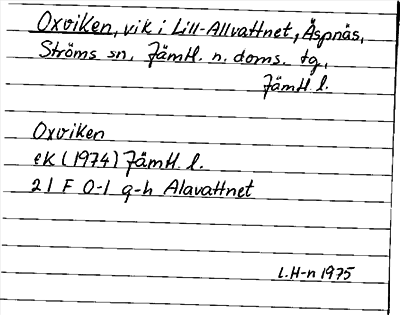 Oxviken, vik i Lill-Allvattnet, Äspnäs,
Ströms sn, Jämtl. n. doms. tg,
Jämtl l.
Oxviken
eK (1974) Jämtl l.
21 F 0-1 g-h Alavattnet
L.H-n 1975